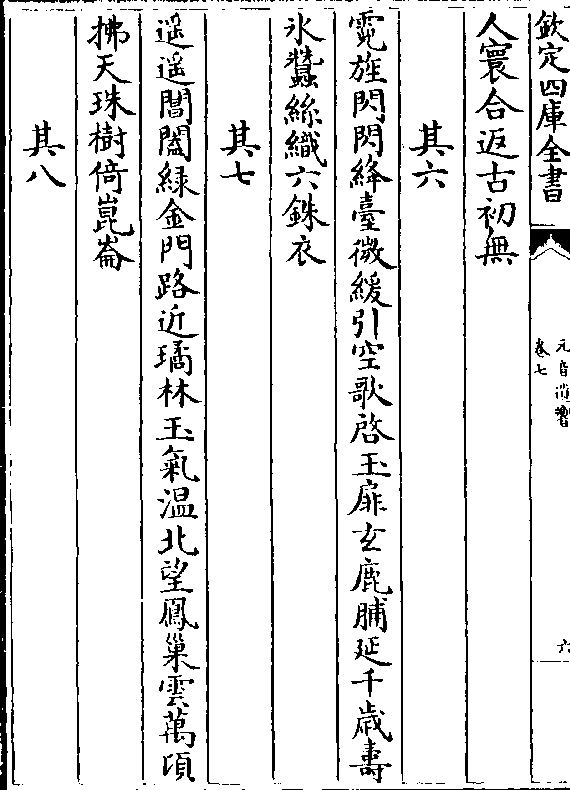 欽定四庫全書
元音遺響
卷七
六
人寰合返古初無
其六
霓旌閃閃絳臺微緩引空歌啓玉扉玄鹿脯延千歲壽
氷蠶絲織六銖衣
其七
遥遥閶闔緑金門路近璚林玉氣温北望鳳巢雲萬頃
拂天珠樹倚崑崙
其八